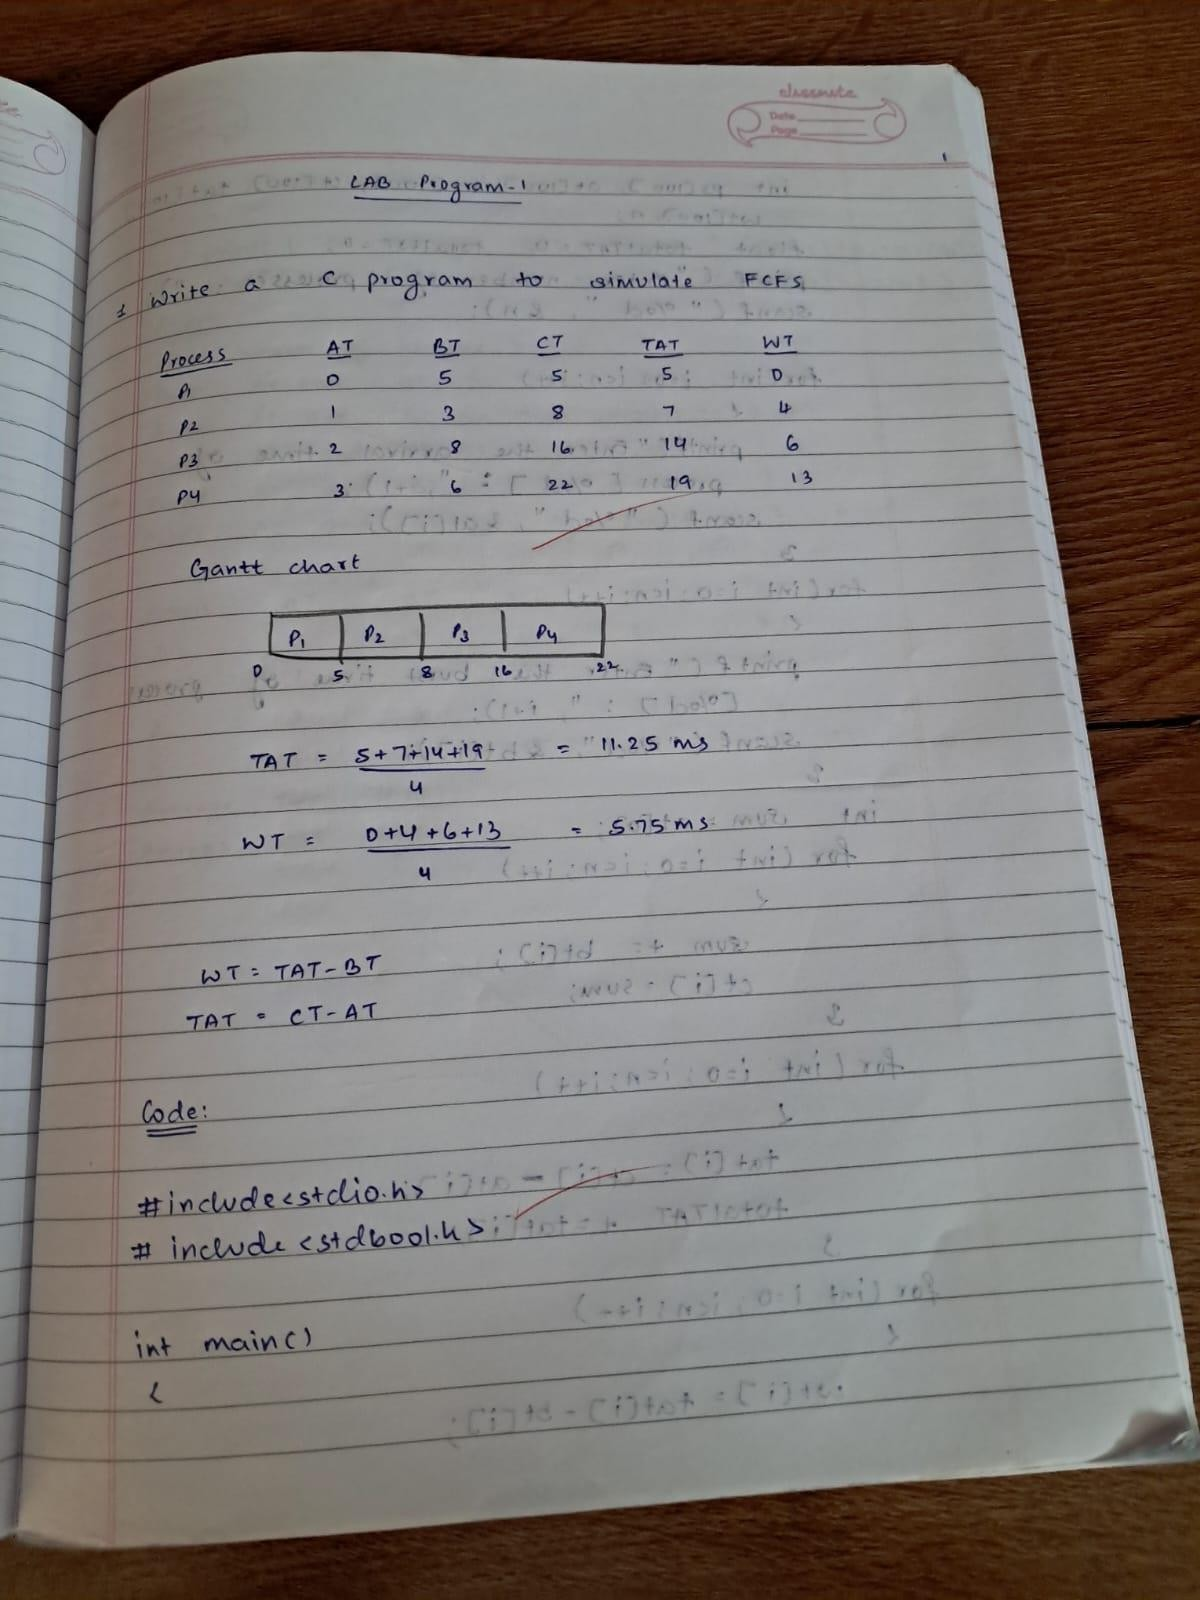 classmate
Date
Page
1
LAB Program-1
1 Write a C program to simulate FCFS
Process AT BT CT TAT WT
P1 0 5 5 5 0
P2 1 3 8 7 4
P3 2 8 16 14 6
P4 3 6 22 19 13
Gantt chart
P1 P2 P3 P4
0 5 8 16 22
TAT = 5+7+14+19 = 11.25 ms
4
WT = 0+4+6+13 = 5.75 ms
4
WT = TAT-BT
TAT = CT-AT
Code:
#include<stdio.h>
# include <stdbool.h>
int main()
{